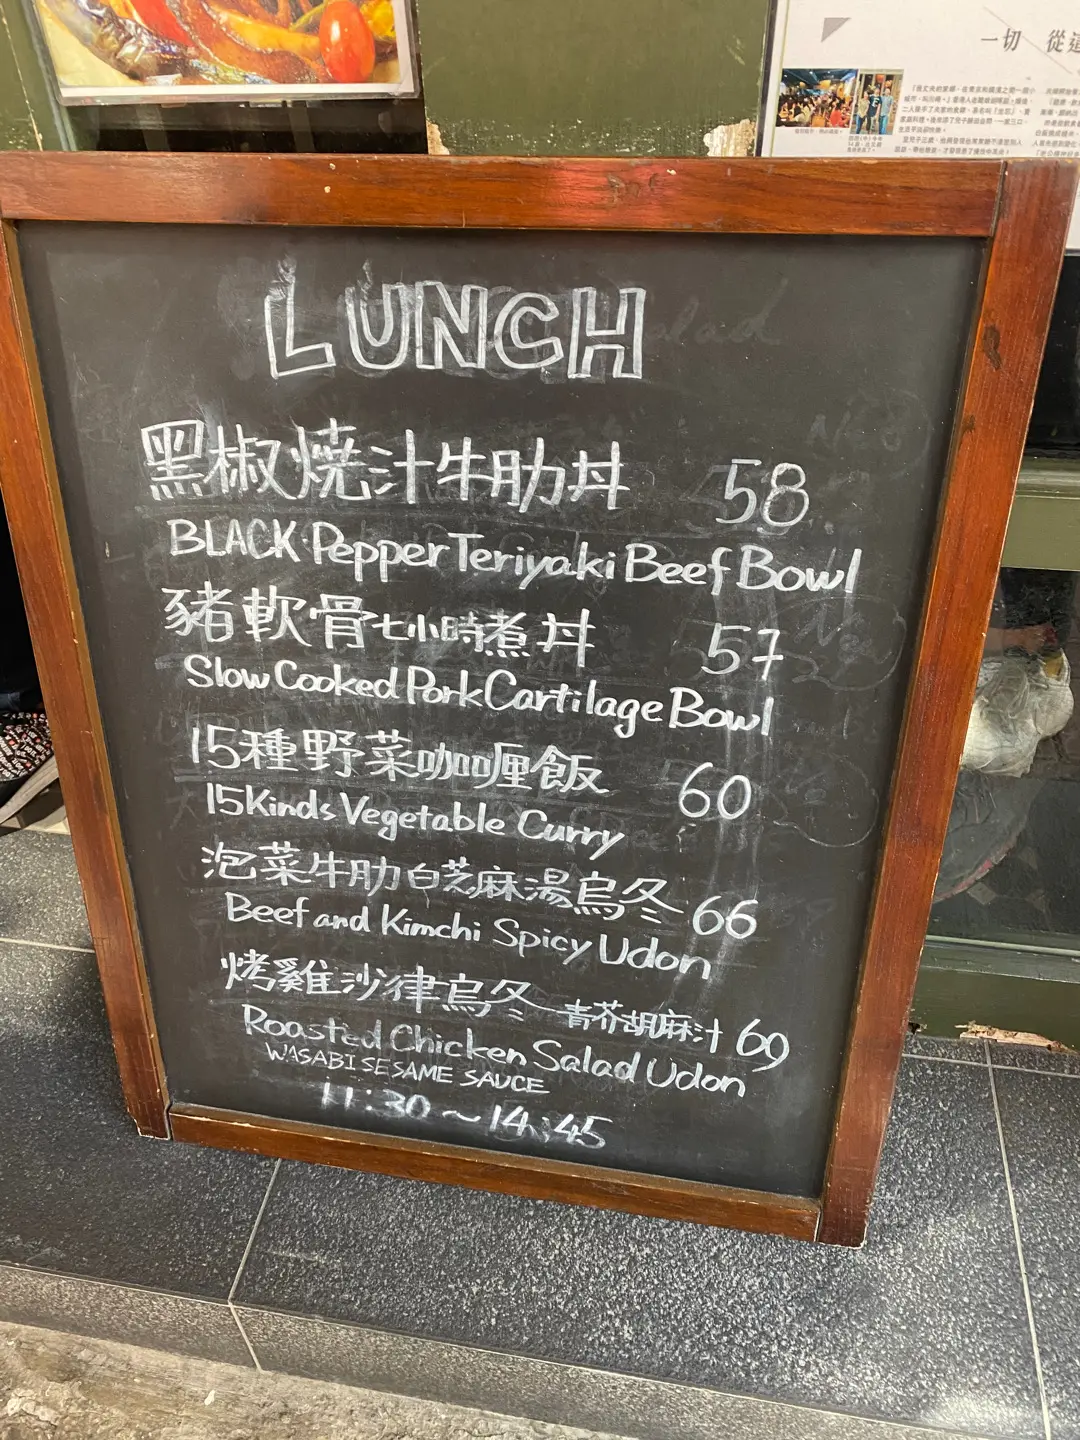 一切 從這
LUNCH
黑椒燒汁牛肋丼 58
BLACK Pepper Teriyaki Beef Bowl
豬軟骨七小時煮丼 57
Slow Cooked Pork Cartilage Bowl
15種野菜咖喱飯 60
15 Kinds Vegetable Curry
泡菜牛肋白芝麻湯烏冬 66
Beef and Kimchi Spicy Udon
烤雞沙律烏冬 青芥胡麻汁 69
Roasted Chicken Salad Udon
WASABI SESAME SAUCE
11:30~14:45